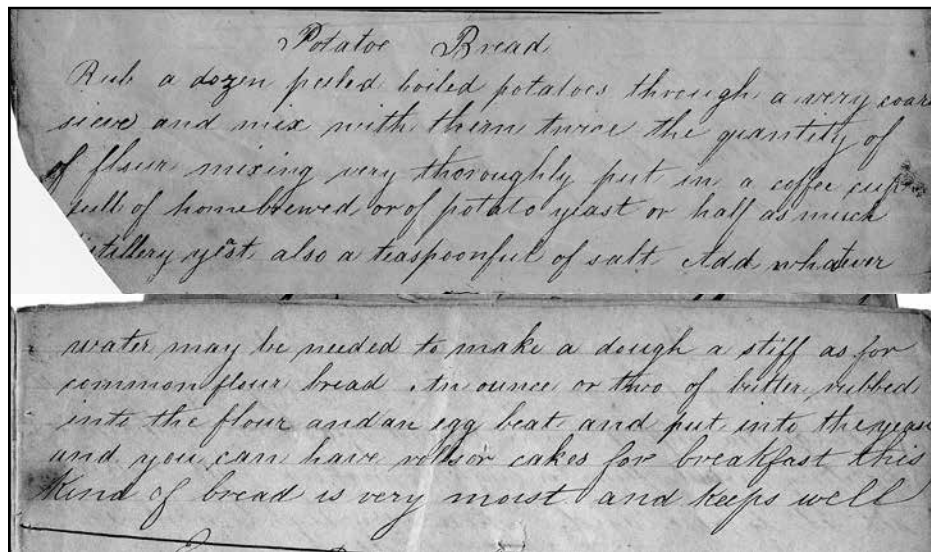 Potatoe Bread
Rub a dozen peeled boiled potatoes through a very coars
sieve and mix with them twice the quantity of
of flour mixing very thoroughly put in a coffee cup
full of homebrewed or of potato yeast or half as much
distillery yeast also a teaspoonful of salt Add whatever
water may be needed to make a dough a stiff as for
common flour bread An ounce or two of butter rubbed
into the flour and an egg beat and put into the yeast
and you can have rolls or cakes for breakfast this
kind of bread is very moist and keeps well